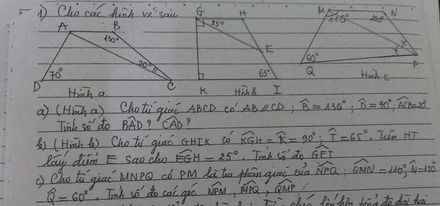 1) Cho các hình vẽ sau
A B G H M N
130° 25° 110° 120°
E
70° 20° 65° 60°
D C K I Q P
Hình a Hình b Hình c
a) (Hình a) Cho tứ giác ABCD có AB // CD, B̂ = 130°, D̂ = 70°,
Tính số đo BÂD? CÂD?
b) (Hình b) Cho tứ giác GHIK có KGH = K̂ = 90°, Î = 65°. Trên HI
lấy điểm E sao cho EGH = 25°. Tính số đo GEI
c) Cho tứ giác MNPQ có PM là tia phân giác của NPQ, QMN = 110°, N̂ = 120°
Q̂ = 60°. Tính số đo các góc NPM, MPQ, QMP